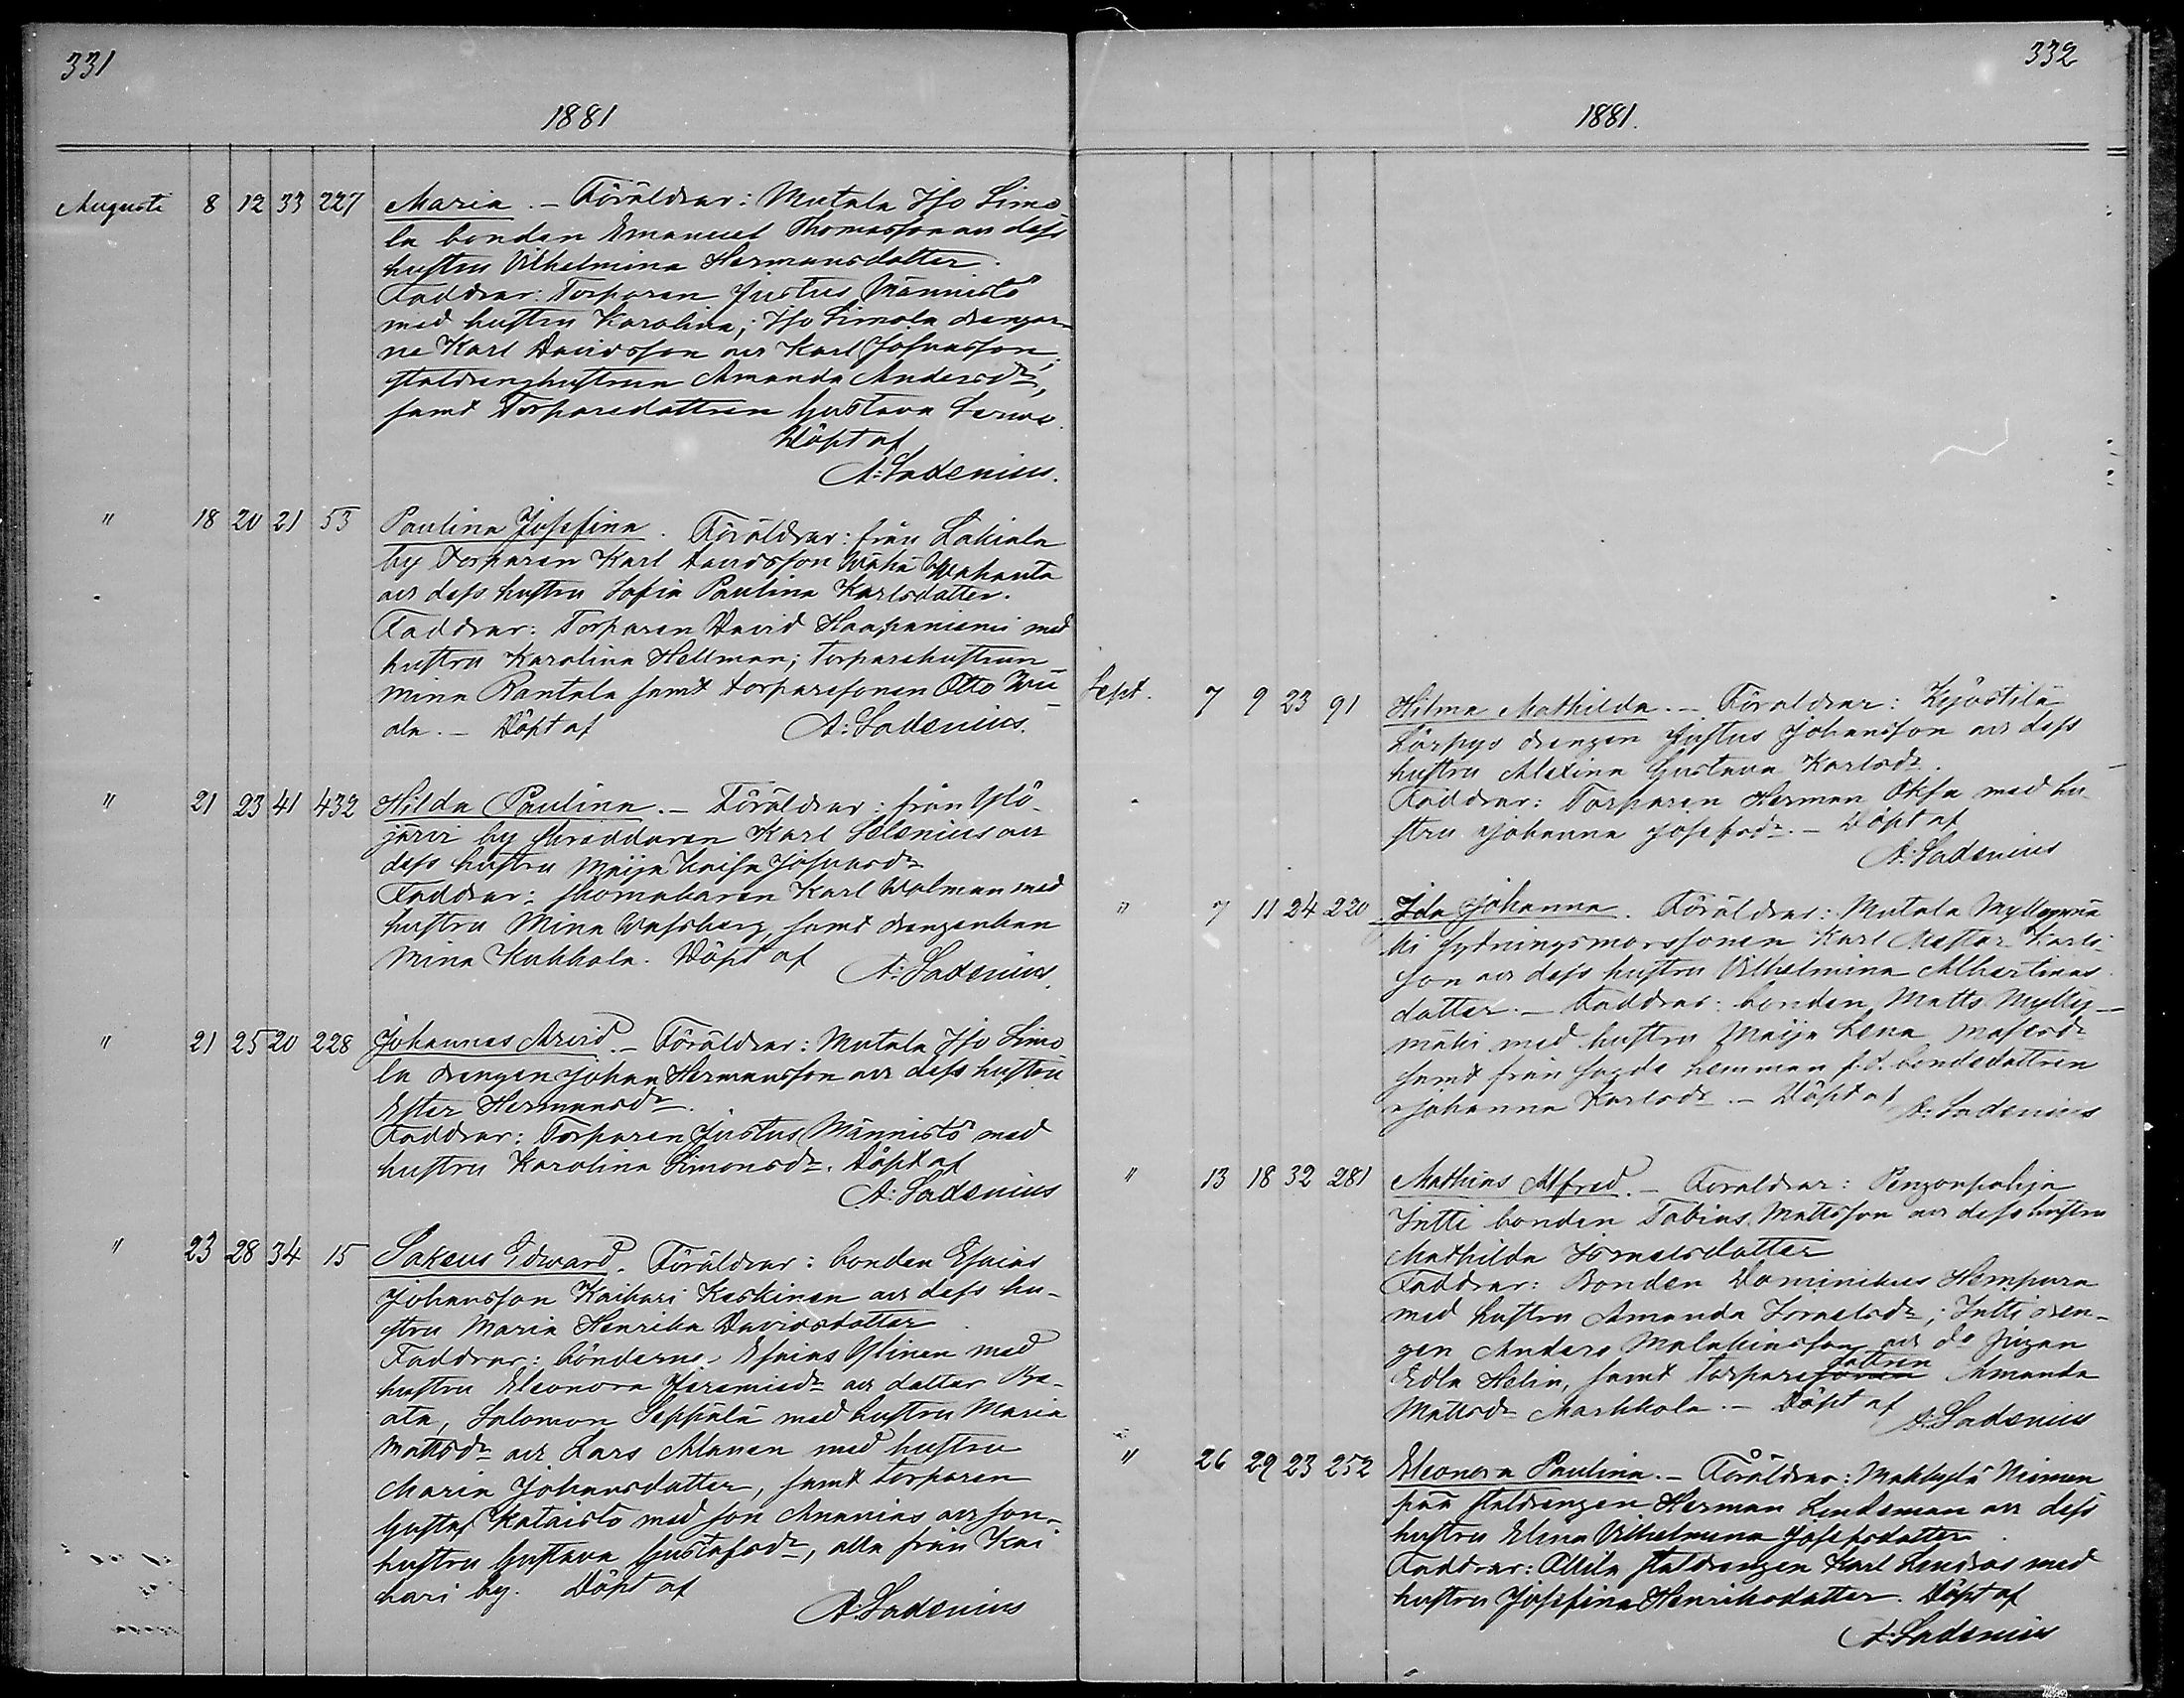 331
1881
Augusti 8 12 33 227 Maria. – Föräldrar: Mutala Iso Simo-
la bonden Emanuel Thomasson och dess
hustru Vilhelmina Hermansdotter.
Faddrar: Torparen Justus Männistö
med hustru Karolina, Iso Simola drengar-
ne Karl Davidsson och Karl Josuasson,
statdrenghustrun Amanda Andersdr,
samt Torparedottren Gustava
Döpt af
A: Ladenius.
" 18 20 21 53 Paulina Josefina. Föräldrar: från Lakiala
by Torparen Karl Davidsson Wähä Wahanta
och dess hustru Sofia Paulina Karlsdotter.
Faddrar: Torparen David Haapaniemi med
hustru Karolina Hellman; torparehustrun
Mina Rantala samt torparesonen Otto
ala. – Döpt af A: Ladenius.
" 21 23 41 432 Hilda Paulina. – Föräldrar: från Ylö-
järvi by skräddaren Karl Selenius och
dess hustru Maija Kaisa Josuasdr
Faddrar: skomakaren Karl Walman med
hustru Mina Wassberg, samt drengenkan
Mina Kukkola. Döpt af A: Ladenius.
" 21 25 20 228 Johannes Arvid. – Föräldrar: Mutala Iso Simo
la drengen Johan Hermansson och dess hustru
Ester Hermansdr.
Faddrar: Torparen Justus Männistö med
hustru Karolina Simonsdr. Döpt af
A: Ladenius
" 23 28 34 15 Sakeus Edward. Föräldrar: bonden Esaias
Johansson Kaihari Keskinen och dess hu-
stru Maria Henrika Davidsdotter
Faddrar: bönderne Esaias Ylinen med
hustru Eleonora Jeremiedr och dotter Be-
ata, Salomon Seppälä med hustru Maria
Mattsdr och Lars Alanen med hustru
Maria Johansdotter, samt torparen
Gustaf Kataisto med son Ananias och son-
hustru Gustava Gustafsdr, alla från Kai
hari by. Döpt af
A: Ladenius
332
1881.
Sept. 7 9 23 91 Hilma Mathilda. – Föräldrar: Kyöstilä
Lörpys drengen Justus Johansson och dess
hustru Alexina Gustava Karlsdr.
Faddrar: Torparen Herman Oksa med hu-
stru Johanna Josefsdr. – Döpt af
A: Ladenius
" 7 11 24 220 Ida Johanna. Föräldrar: Mutala Myllymä
ki sytningsmorssonen Karl Karls-
son och dess hustru Vilhelmina Albertina
dotter. – Faddrar: bonden Matts Mylly-
mäki med hustru Maija Lena
samt från sagde hemman f.d. bondedottren
Johanna Karlsdr. – Döpt af A: Ladenius
" 13 18 32 281 Mathias Alfred. – Föräldrar: Pengonpohja
Intti bonden Tobias Mattsson och dess hustru
Mathilda Israelsdotter
Faddrar: Bonden Dominikus Hempura
med hustru Amanda Israelsdr; Intti dren-
gen Anders Malakiasson och do pigan
Edla Helin, samt torpare sonen dottren Amanda
Mattsdr Markkola. – Döpt af A: Ladenius
" 26 29 23 252 Eleonora Paulina. – Föräldrar: Makkylä Niemen
pää statdrengen Herman Lindeman och dess
hustru Elina Vilhelmina Josefsdotter
Faddrar: Attila statdrengen Karl Lindros med
hustru Josefina Henriksdotter. Döpt af
A: Ladenius